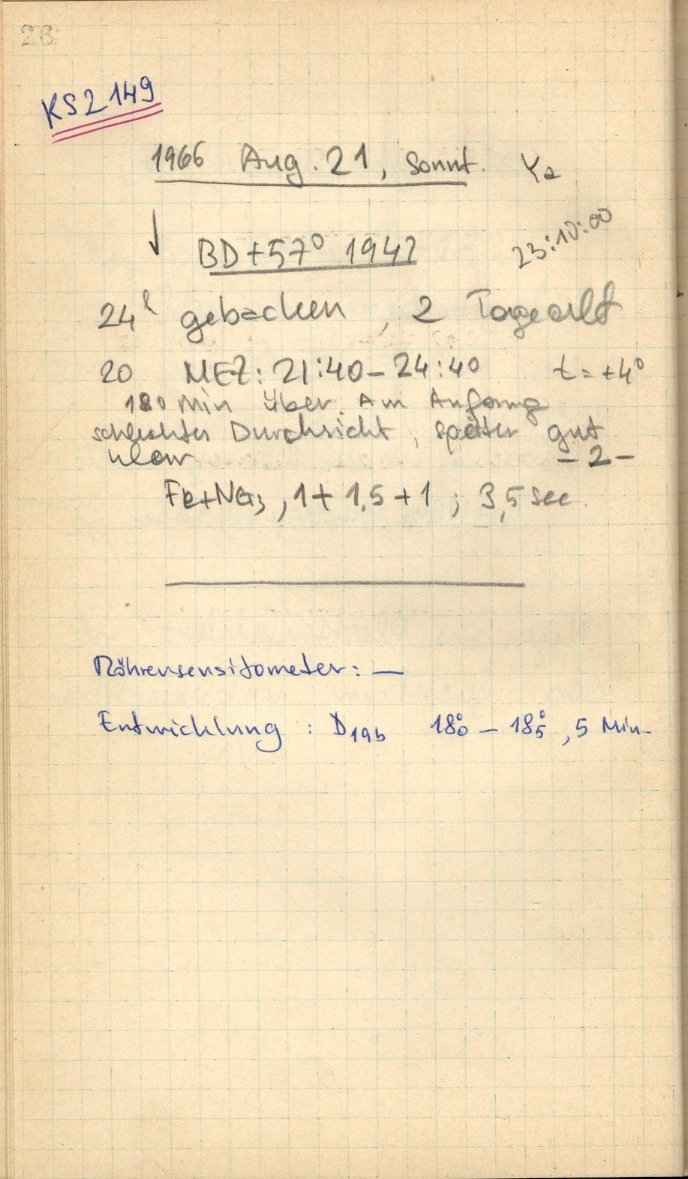 26
KS2 149
1966 Aug. 21, Sonnt. Ya
↓ BD+57° 1942 23:10:00
24h gebacken, 2 Tage alt
20 MEZ: 21:40-24:40 t=+4°
180 Min über. Am Anfang
schlechter Durchsicht, später gut
klar -2-
Fe+Ne, 1+1,5+1; 3,5 sec.
Röhrensensitometer: —
Entwicklung: D19b 18°0 - 18°5, 5 Min.